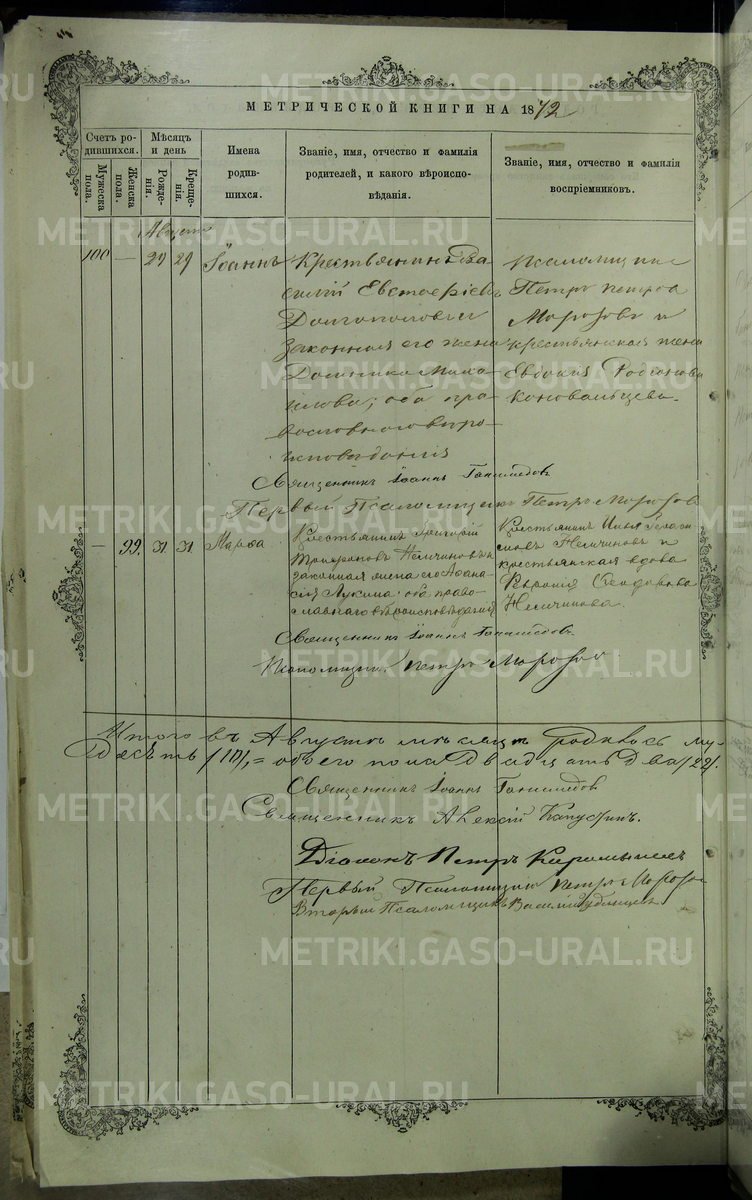 МЕТРИЧЕСКОЙ КНИГИ НА 1872
Счетъ ро-
дившихся.
Мужеска
пола.
Женска
пола.
Мѣсяцъ
и день
Рожде-
нія.
Креще-
нія.
Имена
родив-
шихся.
Званіе, имя, отчество и фамилія
родителей, и какого вѣроиспо-
вѣданія.
Званіе, имя, отчество и фамилія
воспріемниковъ.
Августъ
100 — 29 29 Іоаннъ
Крестьянинъ Ва-
силій Евстафіевъ
Долгополовъ и
законная его жена
Домника Миха-
илова; оба пра-
вославнаго вѣро-
исповѣданія
Псаломщикъ
Петръ Петровъ
Морозовъ и
крестьянская жена
Евдокія Родіонова
Коновальцева.
Священникъ Іоаннъ Ганимедовъ
Первый Псаломщикъ Петръ Морозов
— 99. 31 31 Марѳа
Крестьянинъ Григорій
Трифоновъ Немчиновъ и
законная жена его Аѳана-
сія Лукина оба право-
славнаго вѣроисповѣданія
Крестьянинъ Илья
Немчиновъ и
крестьянская вдова
Ѳеодорова
Немчинова.
Священникъ Іоаннъ Ганимедовъ
Псаломщикъ Петръ Морозов
Итого въ Августѣ мѣсяцѣ родилось му-
десять = обоего пола двадцать два /22/.
Священникъ Іоаннъ Ганимедов
Священникъ Алексій Капустинъ.
Діаконъ Петръ
Первый Псаломщикъ Петръ Морозов
Вторый Псаломщикъ Василій
METRIKI.GASO-URAL.RU